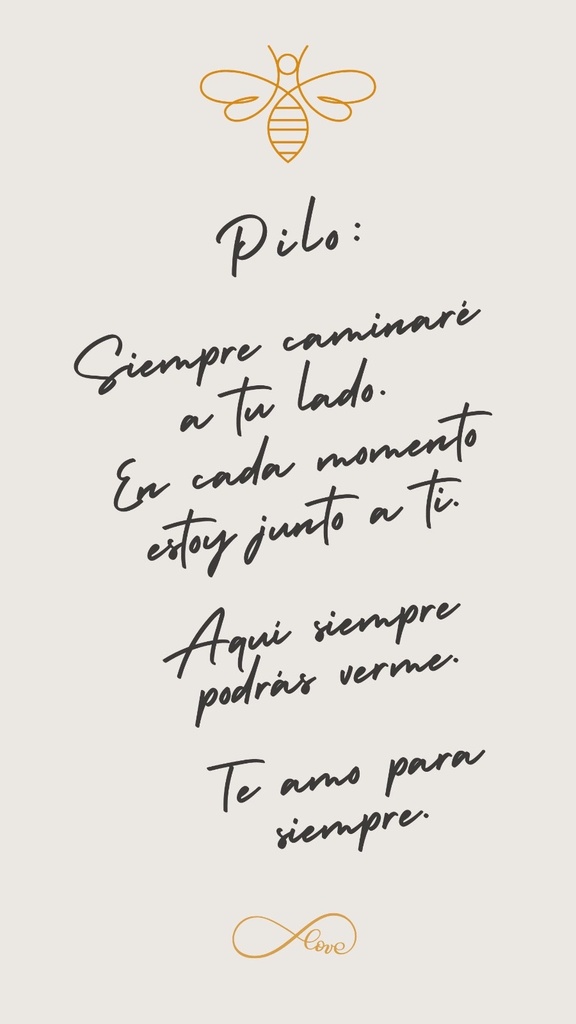 Pilo:
Siempre caminaré
a tu lado.
En cada momento
estoy junto a ti.
Aquí siempre
podrás verme.
Te amo para
siempre.
love